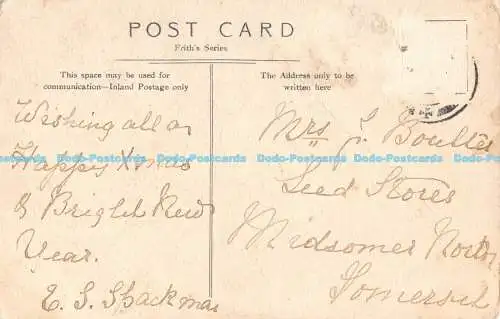 POST CARD
Frith's Series
This space may be used for
communication—Inland Postage only
The Address only to be
written here
Wishing all a
Happy Xmas
& Bright New
Year.
E. S. Shackmas
Mrs J. Boulter
Seed Stores
Midsomer Norton
Somerset
Dodo-Postcards Dodo-Postcards Dodo-Postcards Dodo-Postcards Dodo-Postcards Dodo-Postcards